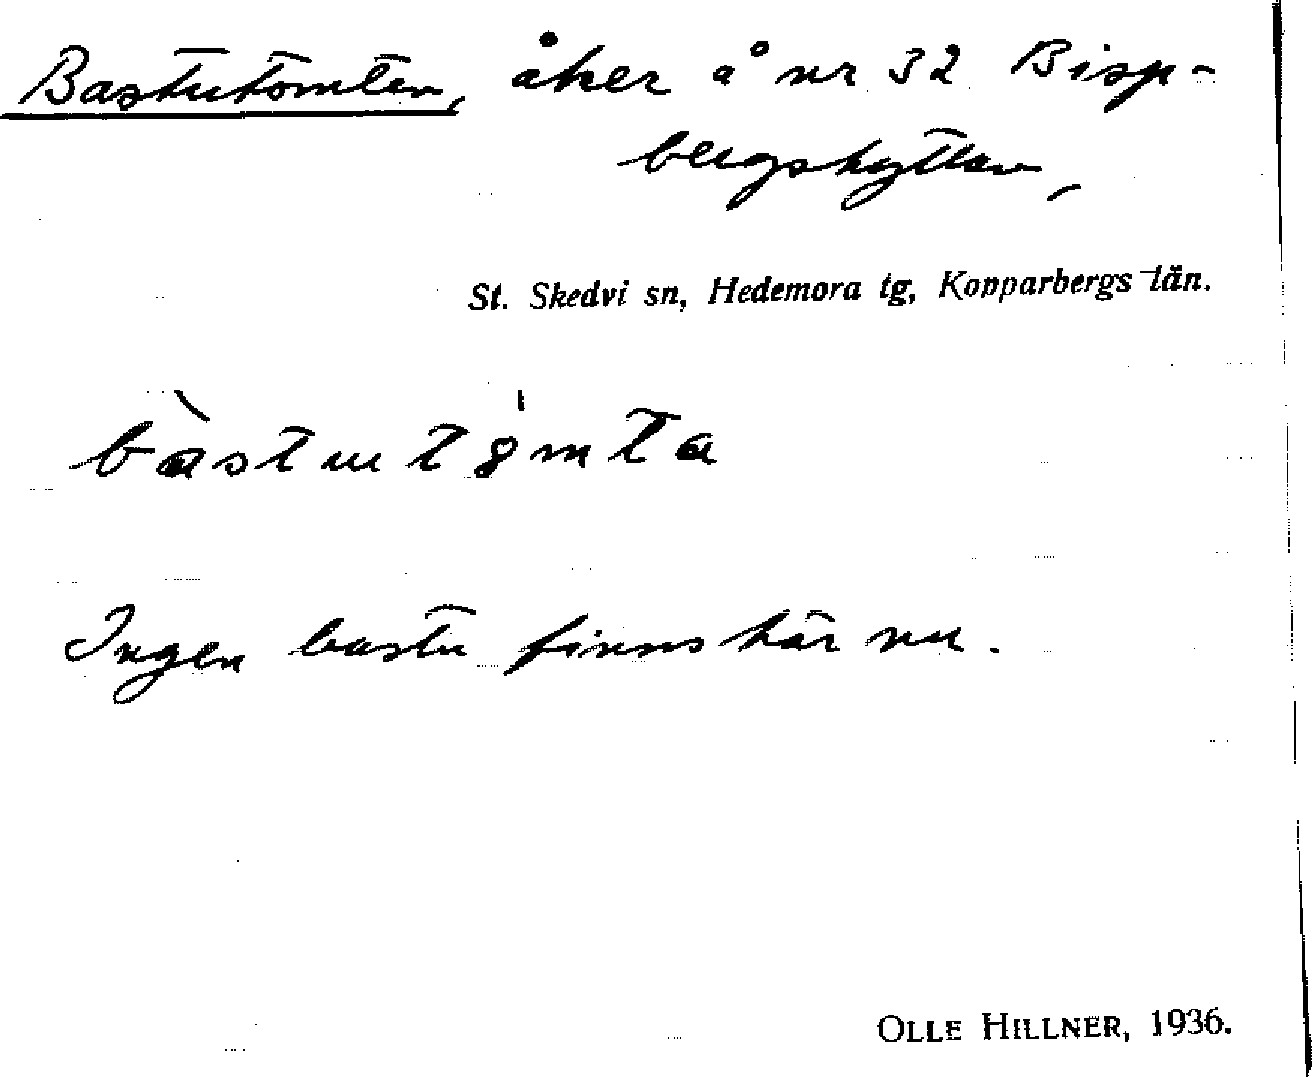 Bastutomten, åker å nr 32 Bisp-
bergshyttan,
St. Skedvi sn, Hedemora tg, Kopparbergs län.
bàstut8̍mta
Ingen bastu finns här nu.
OLLE HILLNER, 1936.